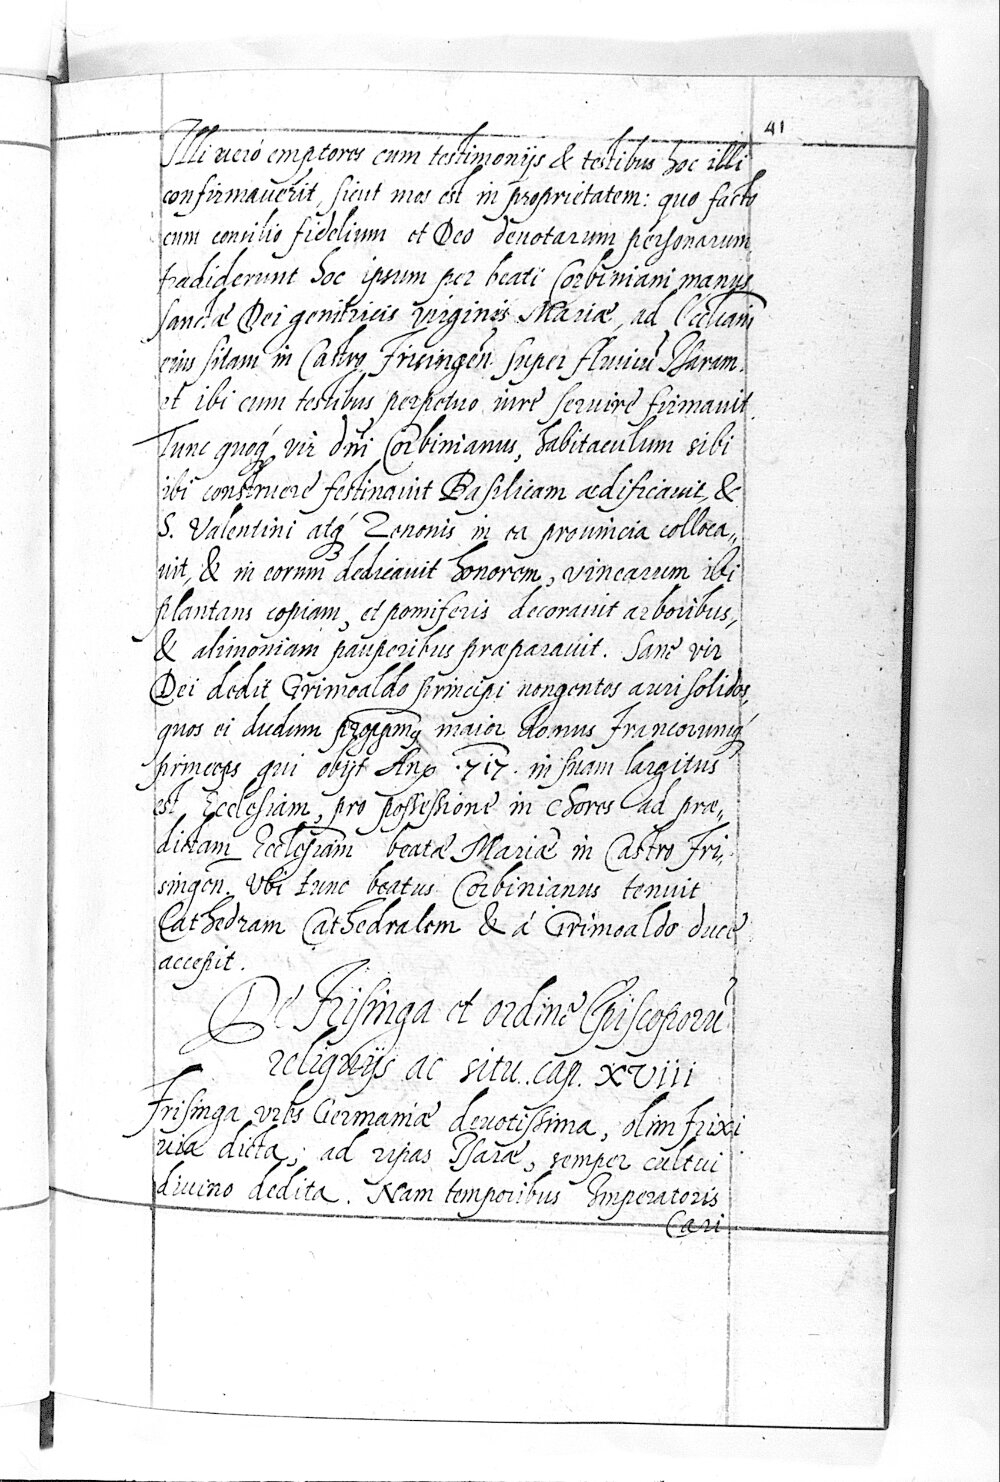 41
Illi veró emptores cum testimonijs & testibus hoc illi
confirmaverit, sicut mos est in proprietatem: quo facto
cum consilio fidelium et Deo deuotarum personarum
tradiderunt hoc ipsum per beati Corbiniani manus
sanctæ Dei genitricis virginis Mariæ, ad Eccliam
eius sitam in Castro Frisingen̄ super fluviū Isaram.
et ibi cum testibus perpetuo iure seruire firmauit.
Tunc quoq́ vir dn̄i Corbinianus, habitaculum sibi
ibi construere festinauit Basilicam ædificauit, &
S. Valentini atq́ Zenonis in ea prouincia colloca„
uit, & in eorum dedicauit honorem, vinearum ibi
plantans copiam, et pomiferis decorauit arboribus,
& alimoniam pauperibus præparauit. Sane vir
Dei dedit Grimoaldo principi nongentos auri solidos,
quos ei dudum maior domus Francorumq́
princeps qui obijt Ano .717. in suam largitus
est Ecclesiam, pro possessione in Chores ad præ„
dictam Ecclesiam beatæ Mariæ in Castro Fri„
singen̄. Vbi tunc beatus Corbinianus tenuit
Cathedram Cathedralem & á Grimoaldo duce
accepit.
De Frisinga et ordine Episcoporū
reliquijs ac situ. cap. XVIII
Frisinga vrbs Germaniæ deuotissima, olim Frixi
nia dicta, ad ripas Isaræ, semper cultui
diuino dedita. Nam temporibus Imperatoris
Cari